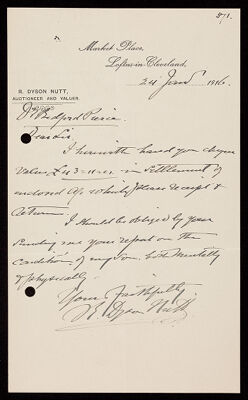 871.
Market Place,
Loftus-in-Cleveland,
24 Jan 1916.
R. DYSON NUTT,
AUCTIONEER AND VALUER.
Dr Bedford Pierce.
Dear Sir
I herewith hand you cheque
value, £43-11-01 in settlement of
enclosed a/c which please receipt &
return.
I should be obliged by your
sending me your report on the
condition of my son both mentally
& physically.
Yours faithfully
R. Dyson Nutt